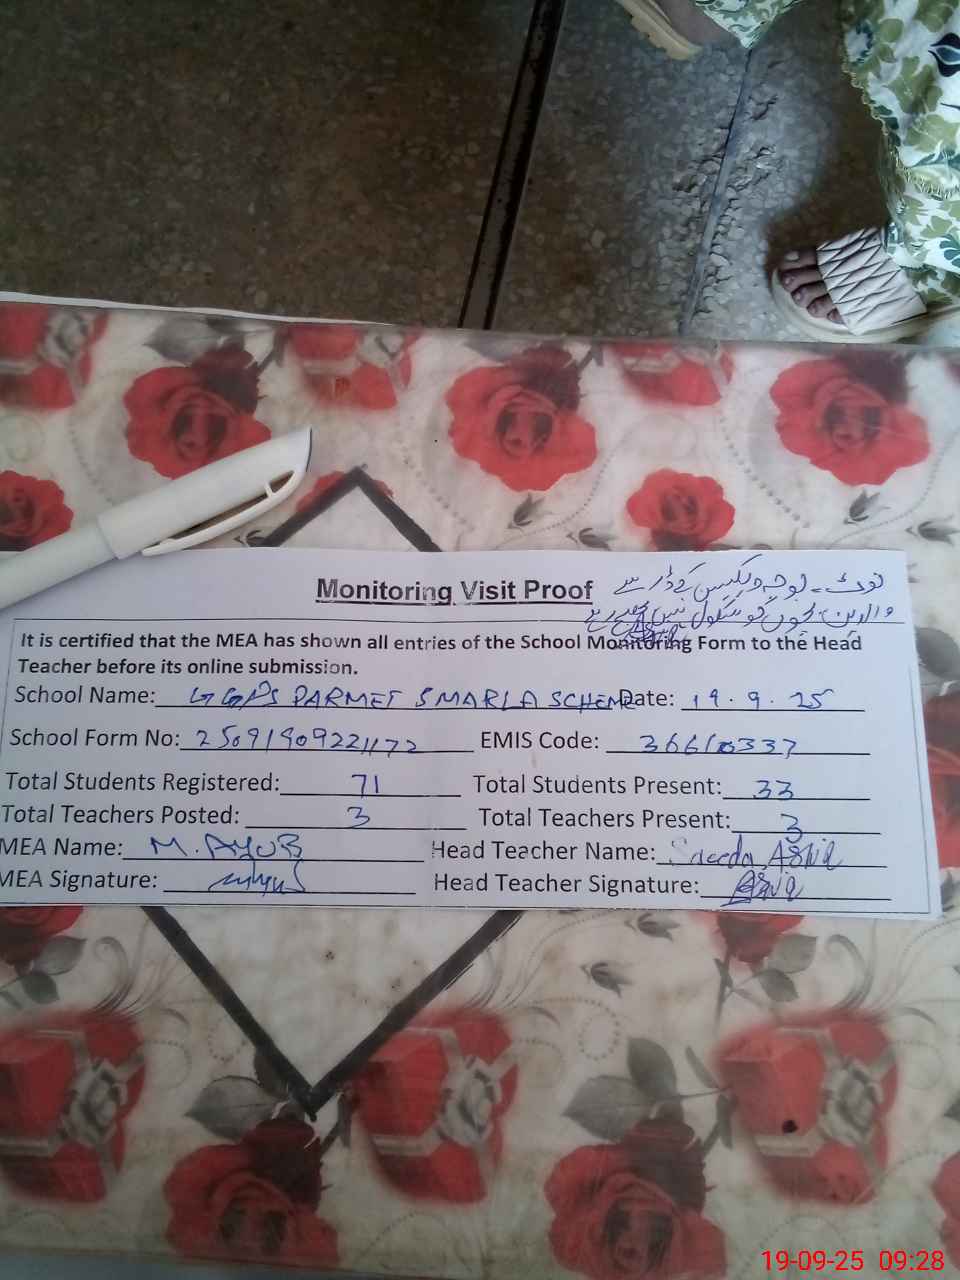 Monitoring Visit Proof
نوٹ۔ بوجہ ویکسین کے ڈر سے
والدین بچوں کو سکول نہیں بھیج رہے
It is certified that the MEA has shown all entries of the School Monitoring Form to the Head
Teacher before its online submission.
School Name: GGPS PARMET 5 MARLA SCHEME Date: 19.9.25
School Form No: 25091909221172 EMIS Code:
Total Students Registered: 71 Total Students Present: 33
Total Teachers Posted: 3 Total Teachers Present: 3
MEA Name: M. AYUB Head Teacher Name: Saeeda
MEA Signature: Head Teacher Signature:
19-09-25 09:28